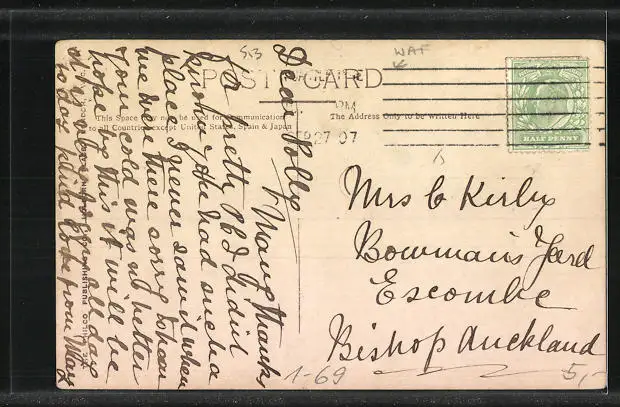 POST CARD
This Space may not be used for Communication
to all Countries except United States, Spain & Japan
The Address Only to be Written Here
PM
27 07
HALF PENNY
Dear Polly
Many thanks
for lovely P.C I didint
know you had such a
place I never saw it when
we were there sorry to hear
your cold was no better
hope by this it will be
it is very
to day kind love from Meg
Mrs C Kirby
Bowman's Yard
Escombe
Bishop Auckland
1-69
5,-
53
WAF